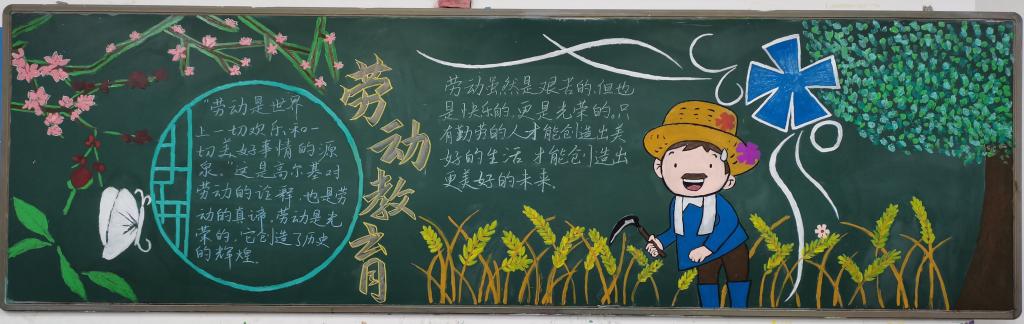 "劳动是世界
上一切欢乐和一
切美好事情的源
泉"这是高尔基对
劳动的诠释,也是劳
动的真谛,劳动是光
荣的,它创造了历史
的辉煌.
劳动教育
劳动虽然是艰苦的,但也
是快乐的,更是光荣的。只
有勤劳的人才能创造出美
好的生活,才能创造出
更美好的未来.